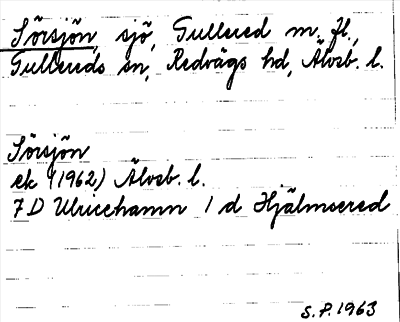 Sörsjön, sjö, Gullered m. fl.,
Gullereds sn, Redvägs hd, Älvsb. l.
Sörsjön
ek (1962) Älvsb. l.
7 D Ulricehamn 1 d Hjälmsered
S.P. 1963